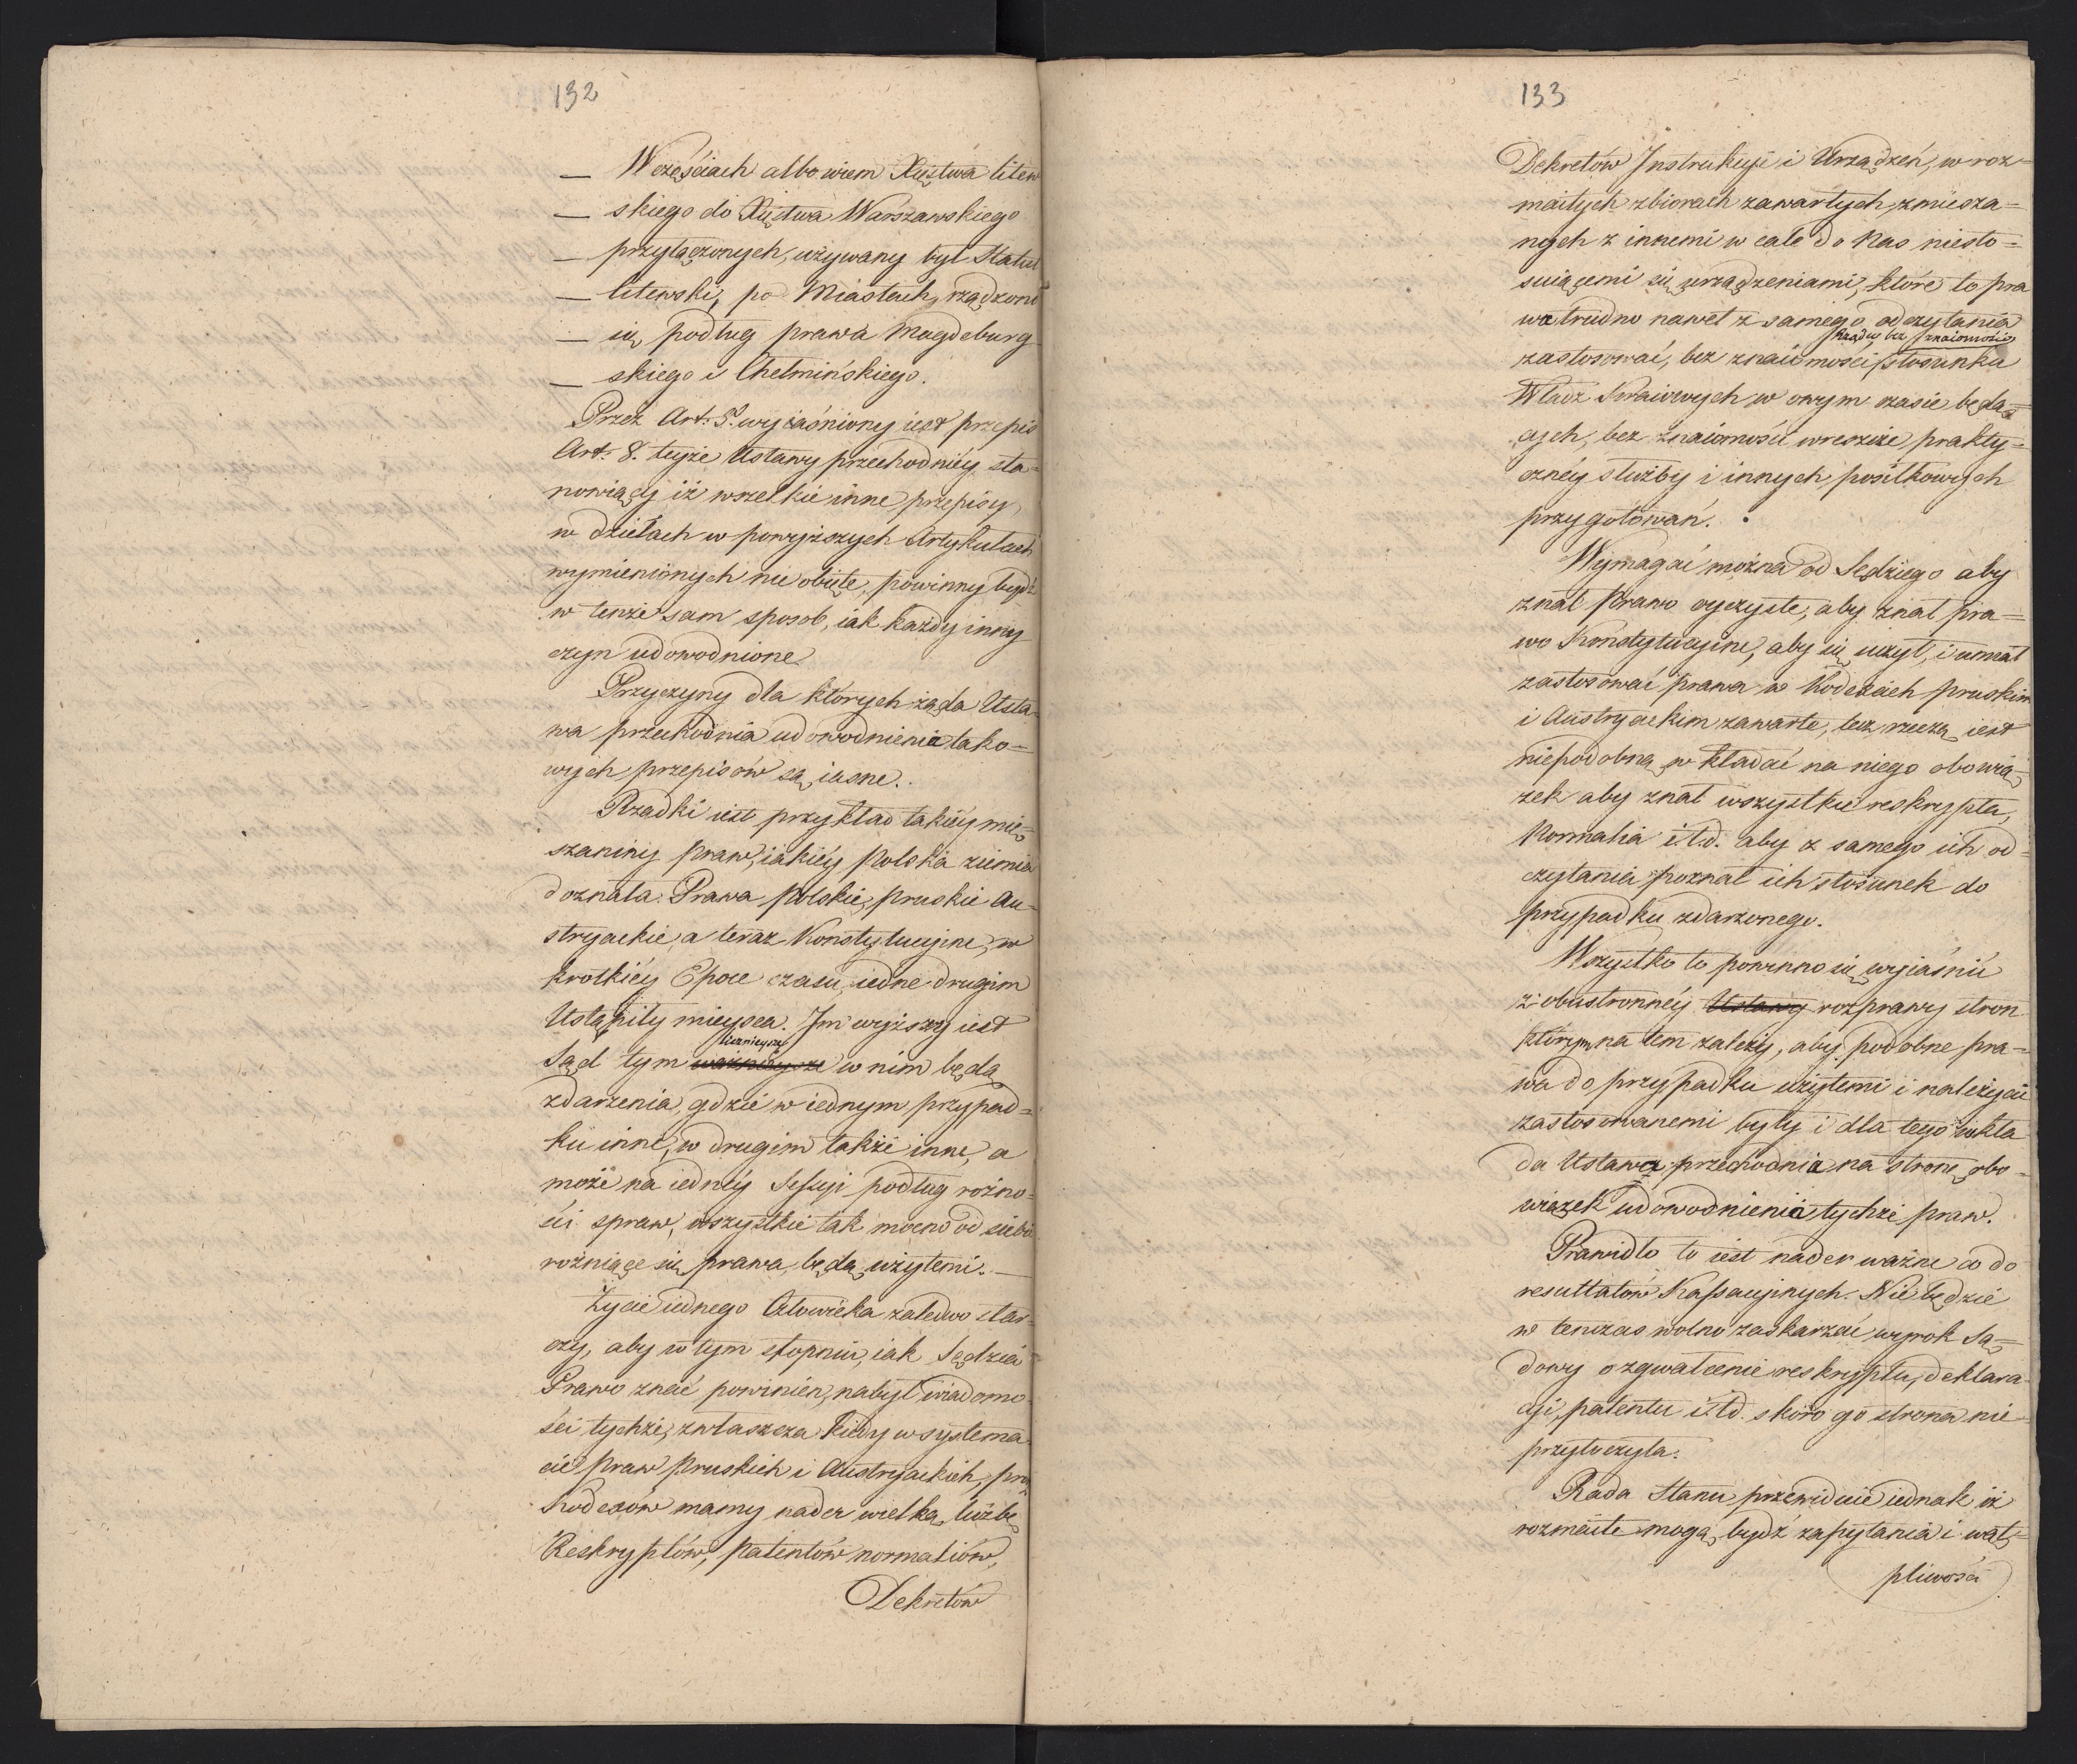 132
— W częściach albowiem Xięstwa litew
— skiego do Xięstwa Warszawskiego
— przyłączonych, używany był Statut
— litewski, po Miastach rządzono
— się podług prawa Magdeburg
— skiego i Chełmińskiego.
Przez Art: 5. wyiaśniony iest przepis
Art. 8. teyże Ustawy przechodniéy sta=
nowiący iż wszelkie inne przepisy,
w dziełach w powyższych Artykułach
wymienionych nie obięte, powinny bydź
w tenże sam sposob, iak każdy inny
czyn udowodnione.
Przyczyny dla których żąda Usta=
wa przechodnia udowodnienia tako=
wych przepisów są iasne.
Rzadki iest przykład takiéy mię=
szaniny praw, iakiéy Polska ziemia
doznała. Prawa polskie, pruskie Au=
stryackie, a teraz Konstytucyine, w
krotkiéy Epoce czasu, iedne drugim
Ustąpiły mieysca. Im wyższy iest
licznieysze
Sąd tym ważnieysze w nim będą
zdarzenia, gdzie w iednym przypad=
ku inne, w drugim także inne, a
może na iednéy Sessyi podług rożno=
ści spraw, wszystkie tak mocno od siebie
rożniące się prawa, będą użytemi. —
Życie iednego Człowieka zaledwo star=
czy, aby w tym stopniu, iak Sędzia
Prawo znać powinien, nabył wiadomo
ści tychże, zwłaszcza kiedy w systema
cie praw Pruskich i Austryackich, prócz
Kodexów mamy nader wielką liczbę
Reskryptów, Patentów normaliów,
Dekretów
133
Dekretów Instrukcyi i Urządzeń, w roz=
maitych zbiorach zawartych, zmiesza=
nych z innemi w cale do nas niesto=
suiącemi się urządzeniami, które to pra
wa trudno nawet z samego odczytania
Rządu, bez znaiomości
zastosować, bez znaiomości stosunku
Władz Kraiowych w owym czasie będą=
cych, bez znaiomości wreszcie prakty=
cznéy służby i innych posiłkowych
przygotowań.
Wymagać można od Sędziego aby
znał Prawo oyczyste, aby znał pra=
wo Konstytucyine, aby się uczył, i umiał
zastosować prawa w Kodexach pruskim
i Austryackim zawarte, lecz rzeczą iest
niepodobną wkładać na niego obowią=
zek aby znał wszystkie reskrypta,
Normalia i.t.d. aby z samego ich od=
czytania poznał ich stosunek do
przypadku zdarzonego.
Wszystko to powinno się wyiaśnić
z obustronnéy Ustawy rozprawy stron
którym na tem zależy, aby podobne pra=
wa do przypadku użytemi i należycie
zastosowanemi były i dla tego wkła
da Ustawa przechodnia na stronę obo=
wiązek udowodnienia tychże praw.
Prawidło to iest nader ważne co do
resultatów Kassacyinych. Nie będzie
w tenczas wolno zaskarżać wyrok Są=
dowy o zgwałcenie reskryptu, deklara
cyi, patentu i.t.d. skoro go strona nie
przytoczyła.
Rada Stanu przewiduie iednak iż
rozmaite mogą bydź zapytania i wąt=
pliwości